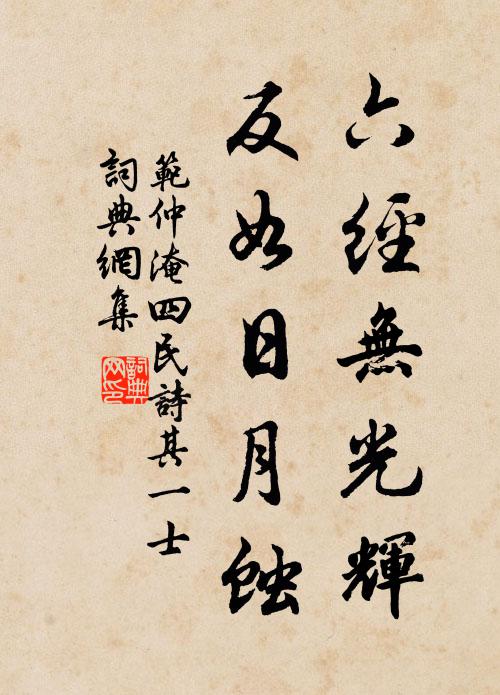 六經無光輝
反如日月蝕
範仲淹四民詩其一士
詞典網集
詞典網印